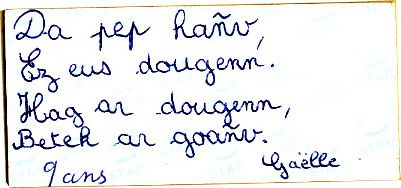 Da pep hañv,
Ez eus dougenn.
Hag ar dougenn,
Betek ar goañv.
9 ans Gaëlle